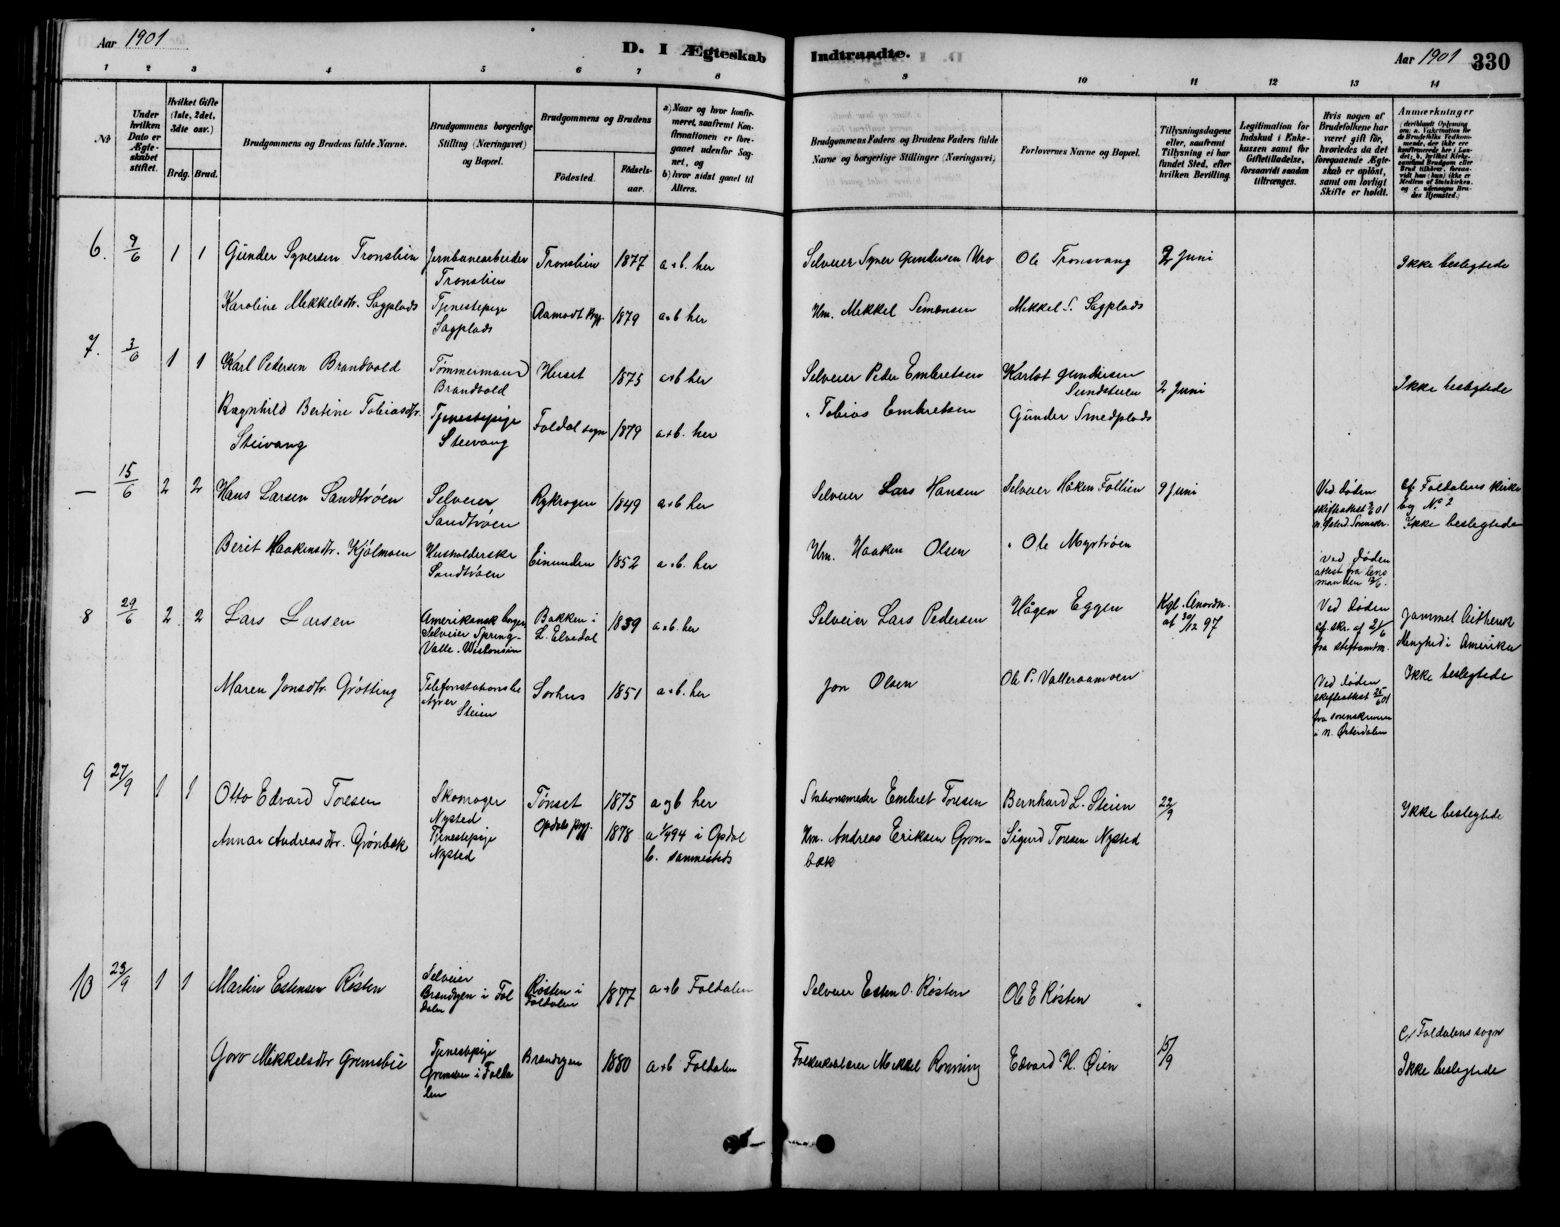 Aar 1901
D. I Ægteskab Indtraadte.
Aar 1901 330
1 2 3 4 5 6 7 8 9 10 11 12 13 14
No
Under hvilken Dato er Ægteskabet stiftet.
Hvilket Gifte (1ste, 2det, 3die osv.)
Brdg. Brud.
Brudgommens og Brudens fulde Navne.
Brudgommens borgerlige Stilling (Næringsvei) og Bopæl.
Brudgommens og Brudens
Fødested.
Fødselsaar.
a) Naar og hvor konfirmeret, saafremt Konfirmationen er foregaaet udenfor Sognet, og
b) hvor sidst gaaet til Alters.
Brudgommens Faders og Brudens Faders fulde Navne og borgerlige Stillinger (Næringsvei)
Forlovernes Navne og Bopæl.
Tillysningsdagene eller, saafremt Tillysning ei har fundet Sted, efter hvilken Bevilling.
Legitimation for Indskud i Enkekassen samt for Giftetilladelse, forsaavidt saadan tiltrænges.
Hvis nogen af Brudefolkene har været gift før, hvorledes da det foregaaende Ægteskab er opløst, samt om lovligt Skifte er holdt.
Anmærkninger
6. 9/6 1 1 Gunder Syversen Tronslien Jernbanearbeider Tronslien 1877 a+b. her Selveier Syver Gundersen Ole Tronsvang 2 Juni Ikke beslegtede
Tronslien
Karoline Mikkelsdtr. Sagplads Tjenestepige Aamodt Pgj. 1879 a+b her Hm. Mikkel Simensen Mikkel S. Sagplads
Sagplads
7. 3/6 1 1 Karl Pedersen Brandvold Tømmermand Huset 1875 a+b her Selveier Peder Embretsen Karlot Gundersen 2 Juni Ikke beslegtede
Brandvold Sundstuen
Ragnhild Bertine Tobiasdtr. Tjenestepige Foldal sogn 1879 a+b. her " Tobias Embretsen Gunder Smedplads
Steivang Steivang
— 15/6 2 2 Hans Larsen Sandtrøen Selveier Rykrogen 1849 a+b her Selveier Lars Hansen Selveier Håken Follien 9 Juni Ved døden
Sandtrøen
skifteattest
cf Foldalens kirke
bog No 2
Ikke beslegtede
Berit Haakensdtr. Kjølmoen Husholderske Einunden 1852 a+b. her Hm. Haaken Olsen " Ole Myrtrøen ved døden
Sandtrøen
attest fra lens
manden
8 29/6 2 2 Lars Larsen Amerikansk borger Bakken i 1839 a+b. her Selveier Lars Pedersen Hågen Eggen Kgl. Anordn. Ved døden
Selveier Spring- L. Elvedal af 30/12 97 cf. skr. af 21/6
Valle. Wisconsin fra stiftsamtm.
Menighed i Amerika
Maren Jonsdtr. Grøtting Telefonstationsbe Sørhus 1851 a+b. her Jon Olsen Ole P. Valleraamoen Ved døden Ikke beslegtede
styrer
Steien
skifteattest 25/6 01
fra sorenskriveren
i N. Østerdalen
9 27/9 1 1 Otto Edvard Toresen Skomager Tønset 1875 a og b her Stationsmester Embret Toresen Bernhard L. Steien 22/9 Ikke beslegtede
Nysted
Anna Andreasdtr. Grønbæk Tjenestepige Opdals Pgj. 1878 a 94 i Opdal Hm. Andreas Eriksen Grøn- Sigurd Toresen Nysted
Nysted b. sammesteds bæk
10 29/9 1 1 Martin Estensen Røsten Selveier Røsten i 1877 a+b Foldalen Selveier Esten O. Røsten Ole E Røsten
Brandegen i Fol Foldalen
dalen
Goro Mikkelsdtr Grimsbu Tjenestepige Brandegen 1880 a+b Foldalen Mikkel Rønning Edvard H. Øien 15/9
Grimsbu i Folda
len
c/ Foldalens sogn
Ikke beslegtede